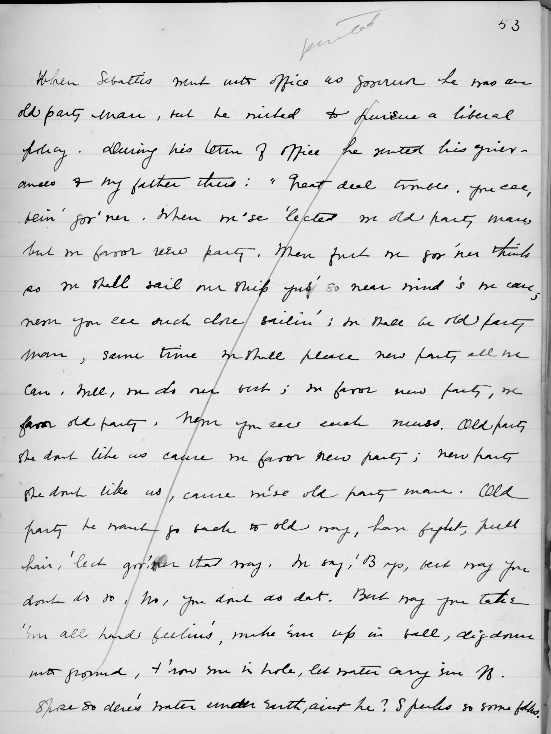 printed
53
When Sebattis went into office as governor he was an
old party man, but he wished to pursue a liberal
policy. During his term of office he stated his griev-
ances to my father thus: "Great deal trouble, you see,
bein' gov'ner. When we'se 'lected we old party man
but we favor new party. When fust we gov'ner think
so we shall sail our ship jus' so near wind 's we can,
never you see such close sailin'; we shall be old party
man, same time we shall please new party all we
can. Well, we do our best; we favor new party, we
favor old party. Never you see such muss. Old party
she dont like us cause we favor new party; new party
she dont like us, cause we'se old party man. Old
party he want go back to old way, have fight, pull
hair, 'lect gov'ner that way. We say, 'B'ys, best way you
dont do so. No, you dont do dat. Best way you take
'em all hard feelins, make 'em up in ball, dig down
into ground, & t'row em in hole, let water carry 'em off.
S'pose so dere's water under earth, aint he? Speaks so some folks.